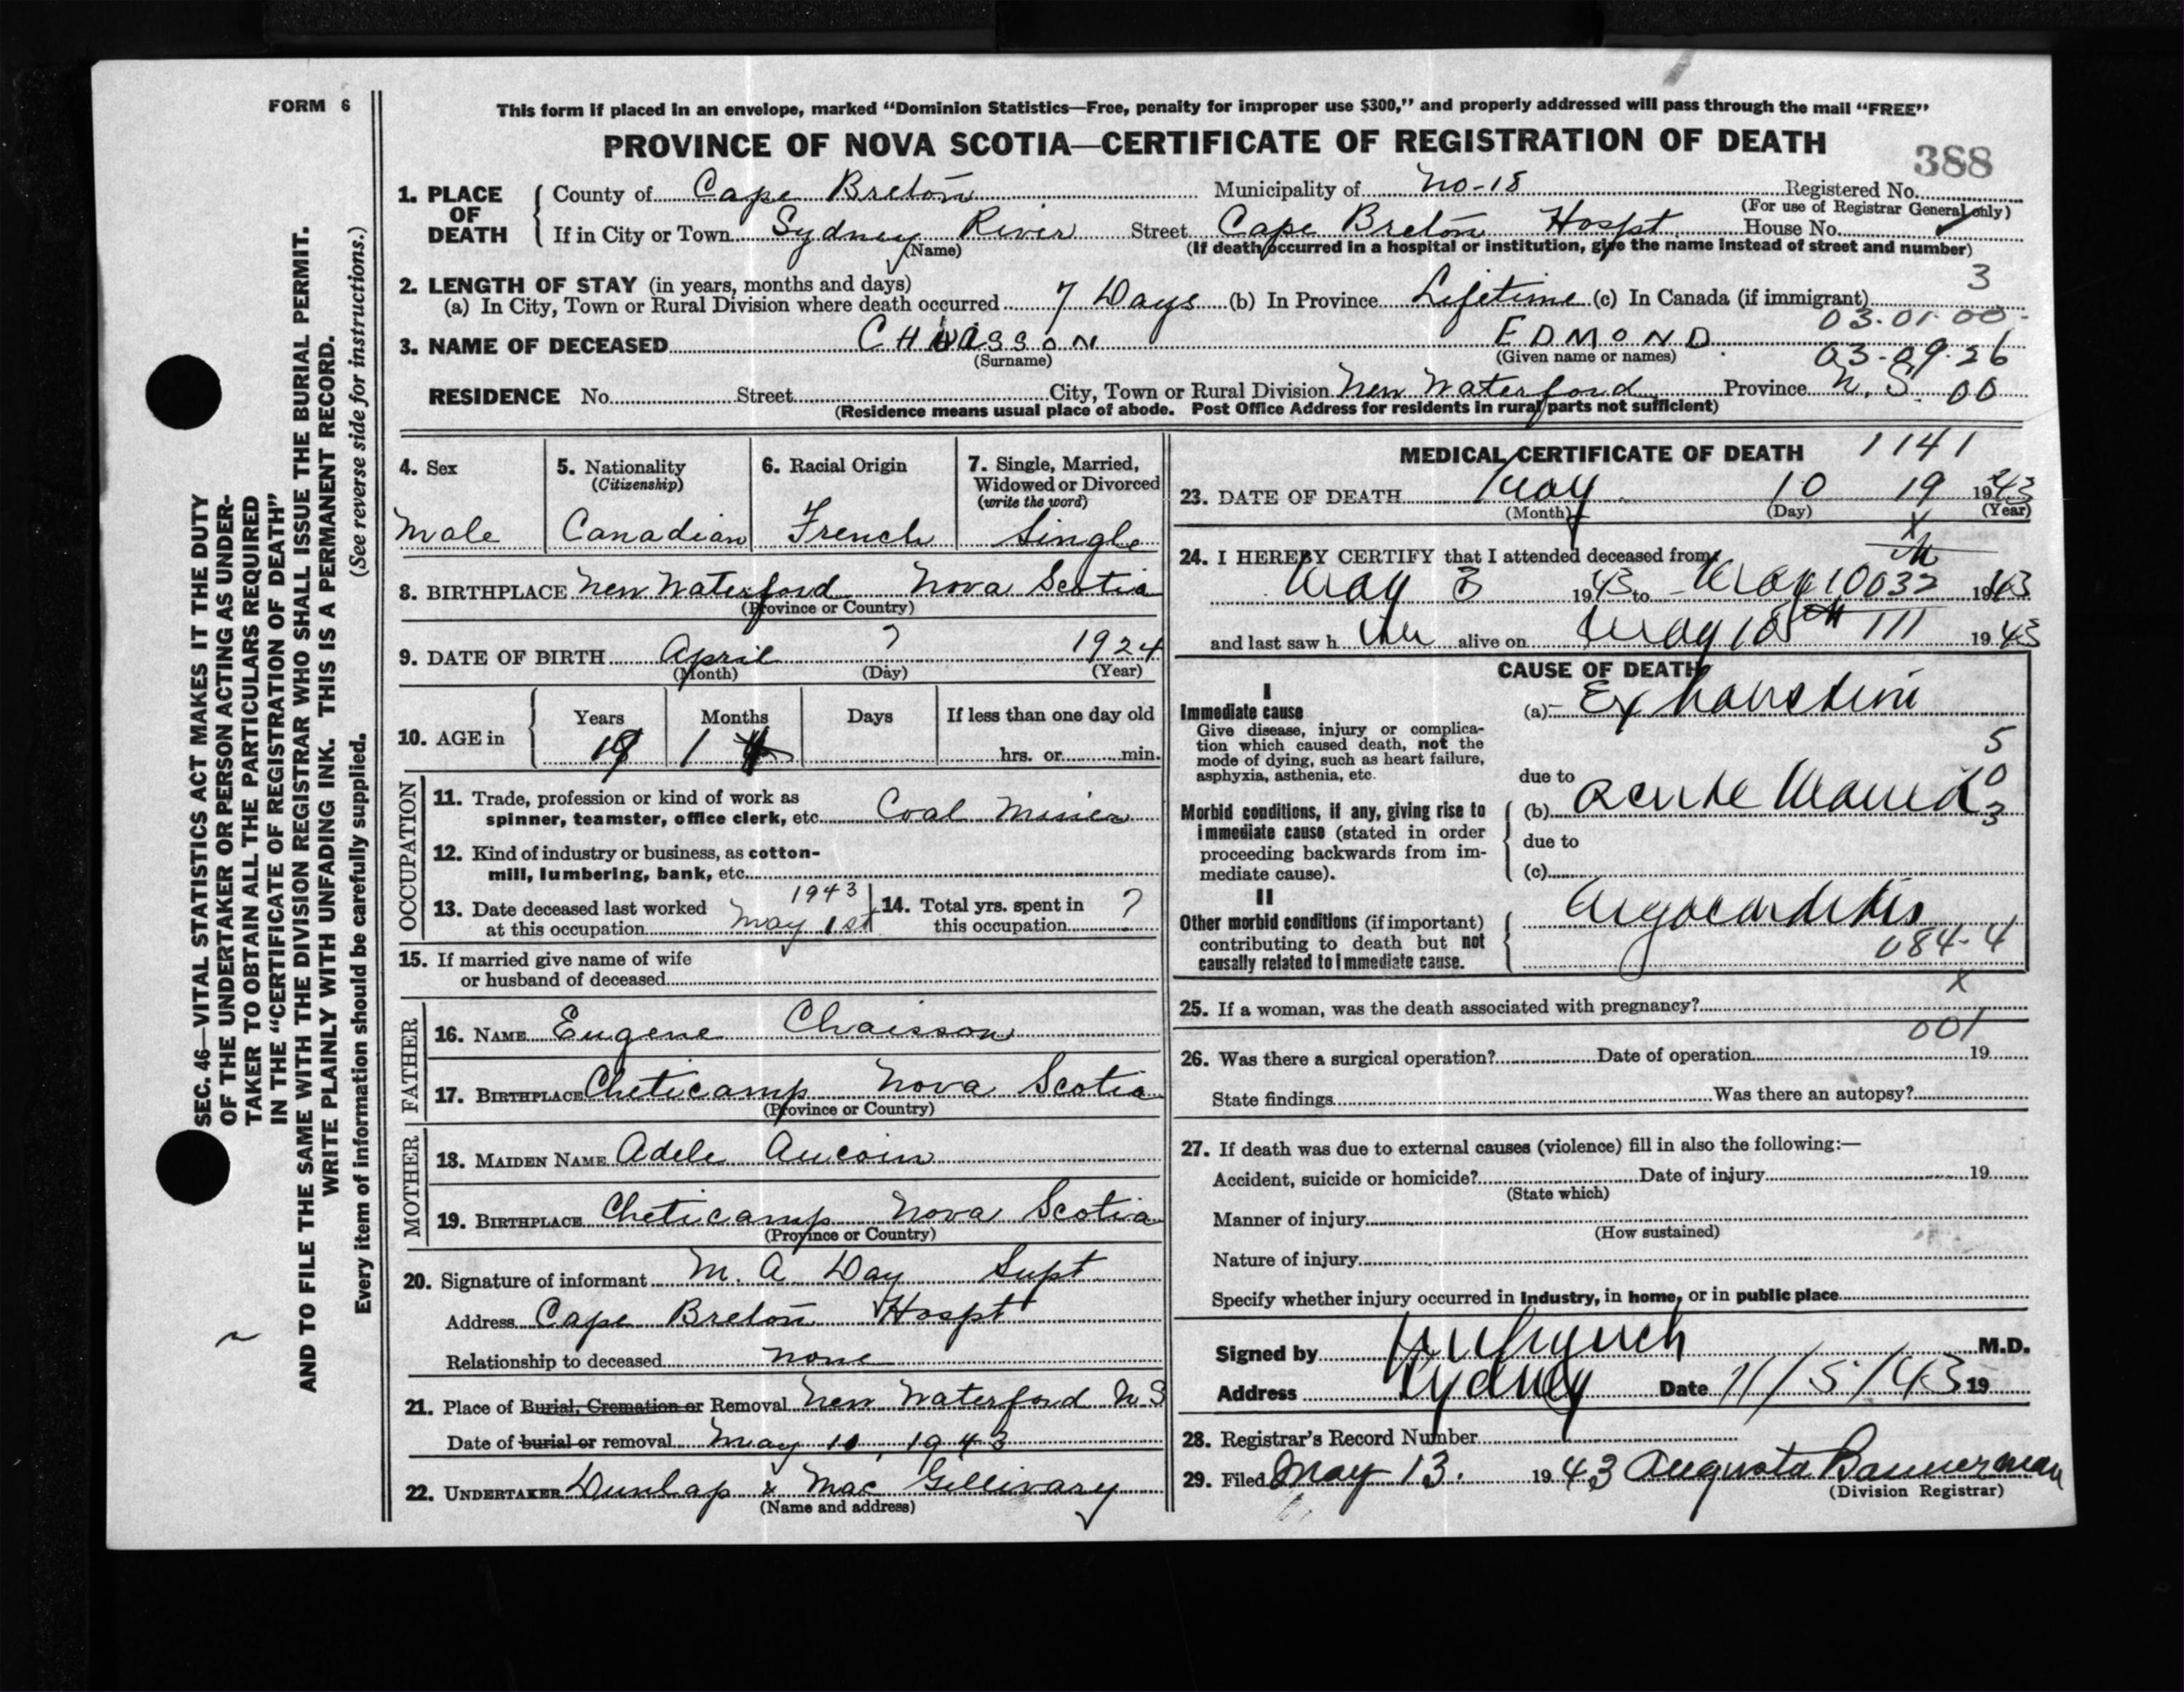 FORM 6
This form if placed in an envelope, marked “Dominion Statistics—Free, penalty for improper use $300,” and properly addressed will pass through the mail “FREE”
PROVINCE OF NOVA SCOTIA—CERTIFICATE OF REGISTRATION OF DEATH
388
1. PLACE OF DEATH
County of Cape Breton Municipality of No-18 Registered No.
(For use of Registrar General only)
If in City or Town Sydney River Street Cape Breton Hospt. House No.
(Name) (If death occurred in a hospital or institution, give the name instead of street and number)
2. LENGTH OF STAY (in years, months and days)
3
(a) In City, Town or Rural Division where death occurred 7 Days (b) In Province Lifetime (c) In Canada (if immigrant)
03-01-00-
3. NAME OF DECEASED CHIASSON EDMOND.
(Surname) (Given name or names)
03-09-26
RESIDENCE No. Street City, Town or Rural Division New Waterford Province N. S. 00
(Residence means usual place of abode. Post Office Address for residents in rural parts not sufficient)
4. Sex
Male
5. Nationality
(Citizenship)
Canadian
6. Racial Origin
French
7. Single, Married, Widowed or Divorced
(write the word)
Single
8. BIRTHPLACE New Waterford Nova Scotia
(Province or Country)
9. DATE OF BIRTH April ? 1924
(Month) (Day) (Year)
10. AGE in
Years Months Days If less than one day old
19 1 hrs. or min.
OCCUPATION
11. Trade, profession or kind of work as
spinner, teamster, office clerk, etc. Coal Miner
12. Kind of industry or business, as cotton-
mill, lumbering, bank, etc.
13. Date deceased last worked 1943
at this occupation May 1st
14. Total yrs. spent in
this occupation ?
15. If married give name of wife
or husband of deceased
FATHER
16. NAME Eugene Chaisson
17. BIRTHPLACE Cheticamp Nova Scotia
(Province or Country)
MOTHER
18. MAIDEN NAME Adele Aucoin
19. BIRTHPLACE Cheticamp Nova Scotia
(Province or Country)
20. Signature of informant M. A. Day Supt
Address Cape Breton Hospt
Relationship to deceased none
21. Place of Burial, Cremation or Removal New Waterford N S
Date of burial or removal May 11, 1943
22. UNDERTAKER Dunlap & Mac Gillivary
(Name and address)
MEDICAL CERTIFICATE OF DEATH 1141
23. DATE OF DEATH May 10 19 1943
(Month) (Day) (Year)
X
24. I HEREBY CERTIFY that I attended deceased from
May 3 1943 to May 10 032 1943
and last saw h im alive on May 10th 111 1943
CAUSE OF DEATH
I
Immediate cause
Give disease, injury or complica-
tion which caused death, not the
mode of dying, such as heart failure,
asphyxia, asthenia, etc.
(a) Exhaustion
5
due to
0
Morbid conditions, if any, giving rise to
immediate cause (stated in order
proceeding backwards from im-
mediate cause).
(b) Acute Mania
3
due to
(c)
II
Other morbid conditions (if important)
contributing to death but not
causally related to immediate cause.
Myocarditis
084-4
X
25. If a woman, was the death associated with pregnancy?
001
26. Was there a surgical operation? Date of operation 19
State findings Was there an autopsy?
27. If death was due to external causes (violence) fill in also the following:—
Accident, suicide or homicide? Date of injury 19
(State which)
Manner of injury
(How sustained)
Nature of injury
Specify whether injury occurred in Industry, in home, or in public place
Signed by M.D.
Address Sydney Date 11/5/43 19
28. Registrar's Record Number
29. Filed May 13. 1943 Augusta Bannerman
(Division Registrar)
SEC. 46—VITAL STATISTICS ACT MAKES IT THE DUTY
OF THE UNDERTAKER OR PERSON ACTING AS UNDER-
TAKER TO OBTAIN ALL THE PARTICULARS REQUIRED
IN THE “CERTIFICATE OF REGISTRATION OF DEATH”
AND TO FILE THE SAME WITH THE DIVISION REGISTRAR WHO SHALL ISSUE THE BURIAL PERMIT.
WRITE PLAINLY WITH UNFADING INK. THIS IS A PERMANENT RECORD.
Every item of information should be carefully supplied. (See reverse side for instructions.)